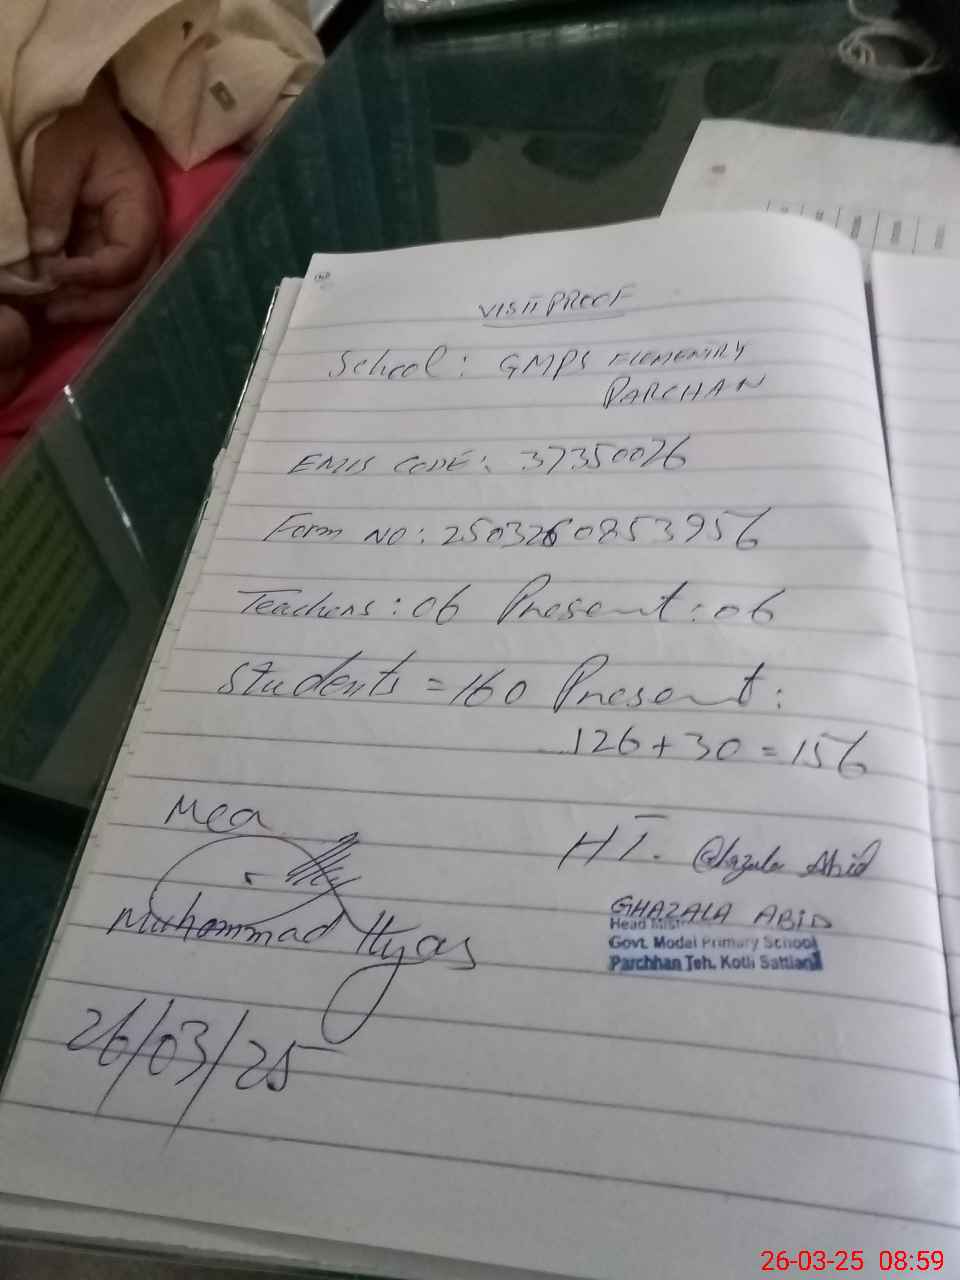 VISIT PROOF
School: GMPS ELEMENTRY
PARCHAN
EMIS CODE: 37350026
Form NO: 2503260853956
Teachers: 06 Present: 06
Students = 160 Present:
126 + 30 = 156
Mea
HT. Ghazala Abid
Muhammad Ilyas
GHAZALA ABID
Head
Govt. Model Primary School
Parchhan Teh. Kotli Sattian
26/03/25
26-03-25 08:59